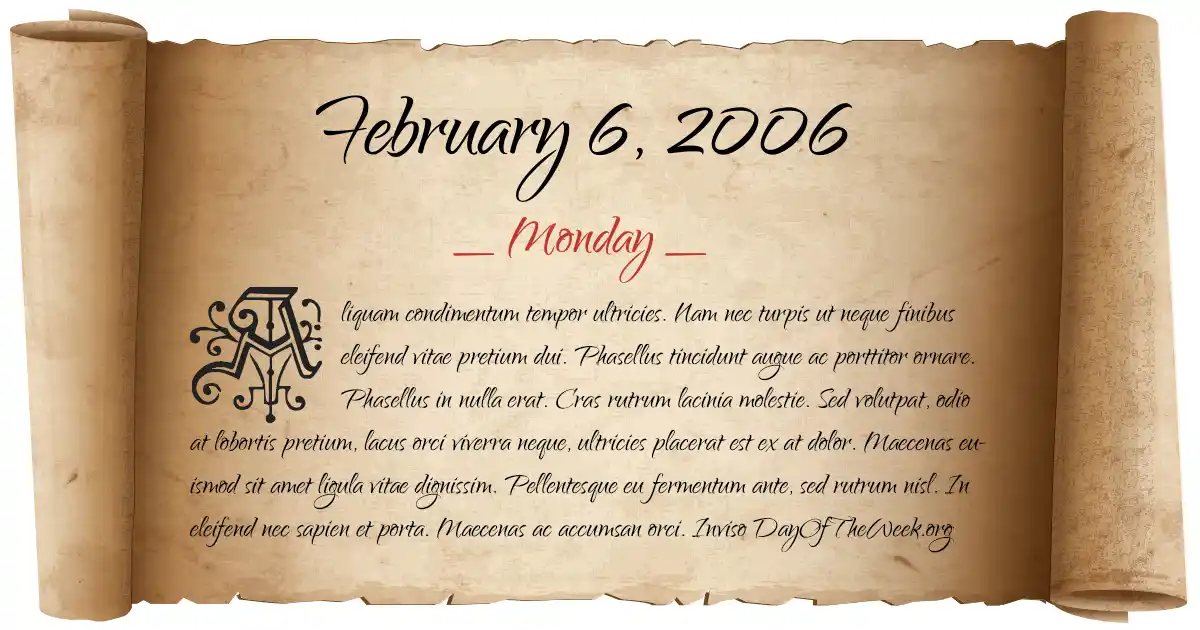 February 6, 2006
__ Monday __
Aliquam condimentum tempor ultricies. Nam nec turpis ut neque finibus
eleifend vitae pretium dui. Phasellus tincidunt augue ac porttitor ornare.
Phasellus in nulla erat. Cras rutrum lacinia molestie. Sed volutpat, odio
at lobortis pretium, lacus orci viverra neque, ultricies placerat est ex at dolor. Maecenas eu-
ismod sit amet ligula vitae dignissim. Pellentesque eu fermentum ante, sed rutrum nisl. In
eleifend nec sapien et porta. Maecenas ac accumsan orci. Inviso DayOfTheWeek.org